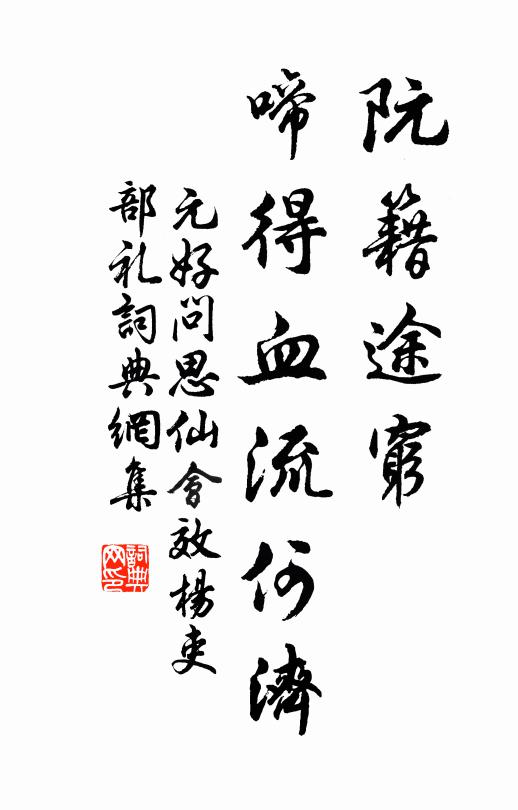 阮籍途窮
啼得血流何濟
元好問思仙會效楊吏
部礼詞典網集
詞典
网印